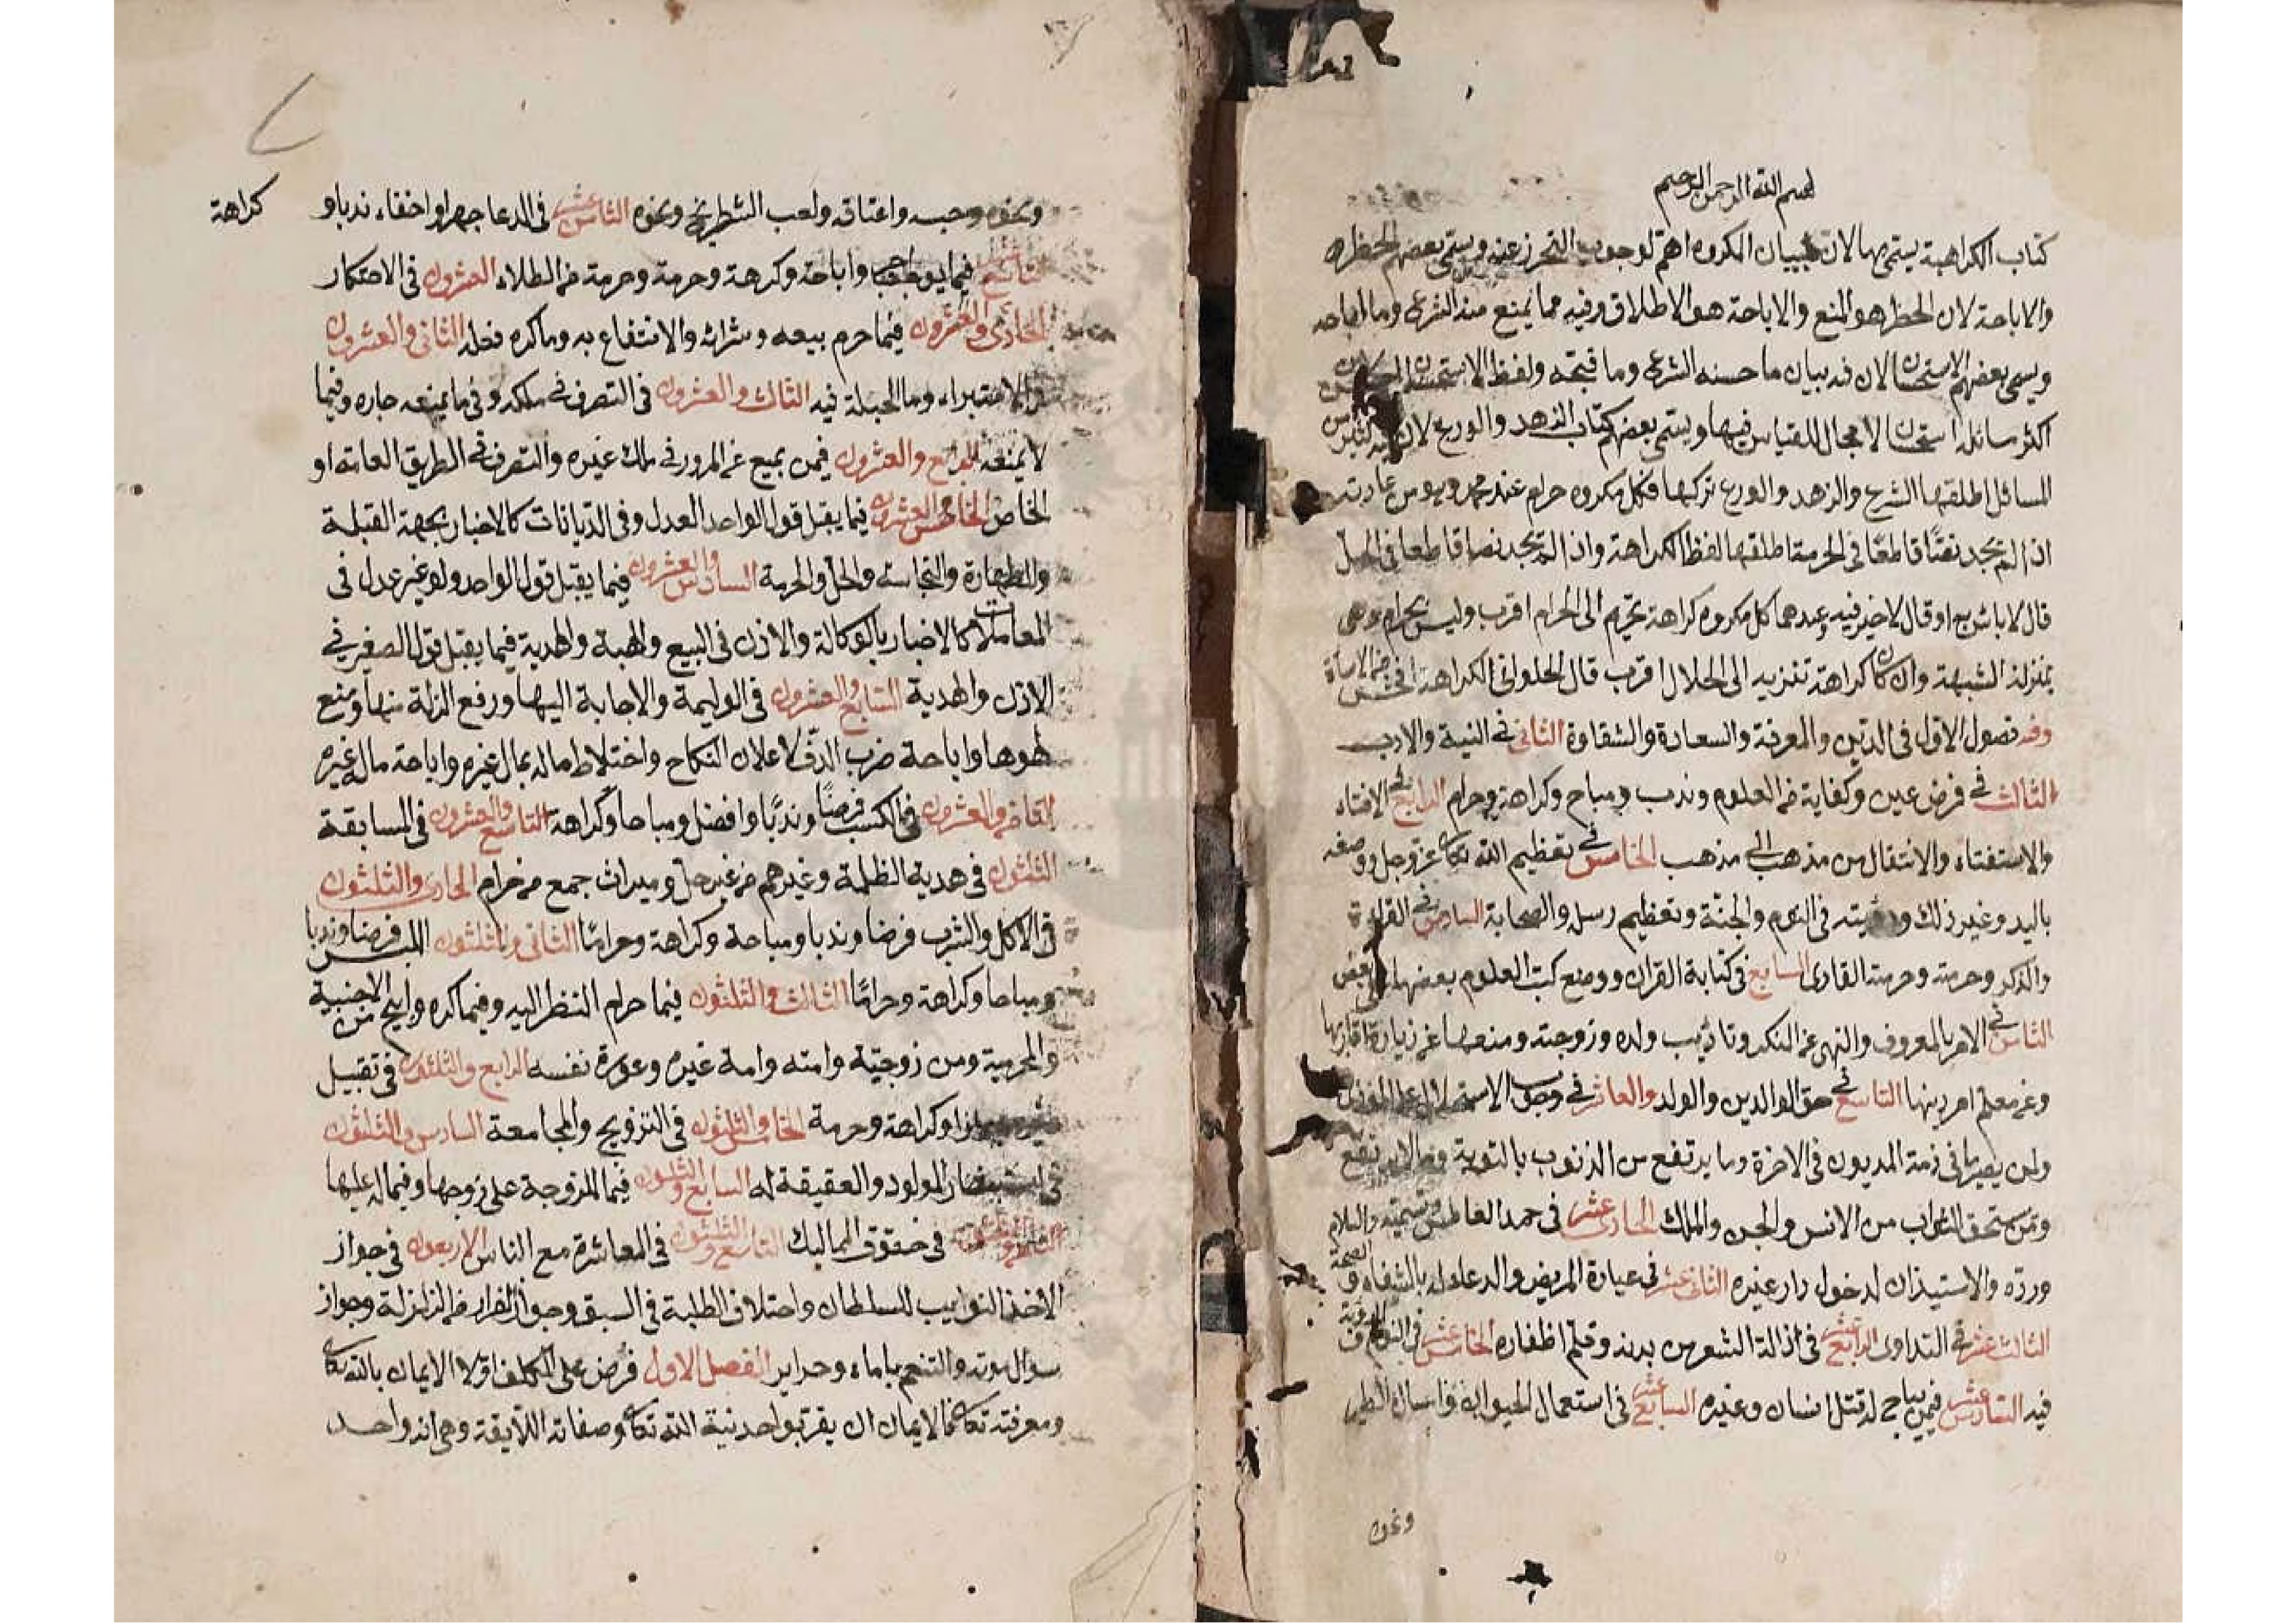 بسم الله الرحمن الرحيم
كتاب الكراهية يسمى بها لان بيان المكروه اهم لوجوب التحرز عنه ويسمى بعضهم الحظر
والاباحة لان الحظر هو المنع والاباحة هو الاطلاق وفيه مما يمنع منه الشرع وما اباحه
ويسمى بعضهم الاستحسان لان فيه بيان ما حسنه الشرع وما قبحه ولفظ الاستحسان
اكثر مسائله استحسان لا مجال للقياس فيها ويسمى بعضهم كتاب الزهد والورع لان
المسائل اطلقها الشرع والزهد والورع تركها فكل مكروه حرام عند محمد
اذا لم يجد نصًّا قاطعًا في الحرمة اطلقها لفظ الكراهة واذا لم يجد نصا قاطعا في الحل
قال لا باس به او قال لا خير فيه وعندهما كل مكروه كراهة تحريم الى الحرام اقرب وليس بحرام
بمنزلة الشبهة وان كان كراهة تنزيه الى الحلال اقرب قال الحلواني الكراهة
وفيه فصول الاول في الدين والمعرفة والسعادة والشقاوة الثاني في النية والادب
الثالث في فرض عين وكفاية من العلوم وندب ومباح وكراهة وحرام الرابع في الافتاء
والاستفتاء والانتقال من مذهب الى مذهب الخامس في تعظيم الله تعالى عز وجل ووصفه
باليد وغير ذلك ورؤيته في النوم والجنة وتعظيم رسله والصحابة السادس في القراءة
والذكر وحرمته وحرمة القارى السابع في كتابة القران ووضع كتب العلوم بعضها على بعض
الثامن في الامر بالمعروف والنهي عن المنكر وتاديب ولده وزوجته ومنعها عن زيارة اقاربها
وعن معلم امر دينها التاسع في حق الوالدين والولد والعاشر في وجوب الاستحلال
ولمن يصير ما في ذمة المديون في الاخرة وما يرتفع من الذنوب بالتوبة
ومن يستحق الثواب من الانس والجن والملك الحادى عشر في حمد العاطس وتشميته والسلام
ورده والاستيذان لدخول دار غيره الثاني عشر في عيادة المريض والدعاء له بالشفاء والصحة
الثالث عشر في التداوى الرابع عشر في ازالة الشعر من بدنه وقلم اظفاره الخامس عشر في
فيه السادس عشر فيمن يباح له قتل انسان وغيره السابع عشر في استعمال الحيوان وارسال الطير
ونحوه
ونحوه وحبسه واعتاقه ولعب الشطرنج ونحوه الثامن عشر في الدعا جهرا واخفاء ندبا و
كراهة
التاسع عشر فيما واباحة وكرهة وحرمة وحرمة من الطلاء العشرون في الاحتكار
الحادى والعشرون فيما حرم بيعه وشراؤه والانتفاع به وما كره فعله الثاني والعشرون
في الاستبراء وما الحيلة فيه الثالث والعشرون في التصرف في ملكه وفي ما يمنعه جاره وفيما
لا يمنعه الرابع والعشرون فيمن يمنع عن المرور في ملك غيره والتصرف في الطريق العامة او
الخاص الخامس والعشرون فيما يقبل قول الواحد العدل وفي الديانات كالاخبار بجهة القبلة
والطهارة والنجاسة والحل والحرمة السادس والعشرون فيما يقبل قول الواحد ولو غير عدل في
المعاملات كالاخبار بالوكالة والاذن في البيع والهبة والهدية فيما يقبل قول الصغير في
الاذن والهدية السابع والعشرون في الوليمة والاجابة اليها ورفع الزلة منها ومنع
لهوها واباحة ضرب الدف لاعلان النكاح واختلاط ماله بمال غيره واباحة مال غيره
الثامن والعشرون في الكسب فرضًا وندبًا وافضل ومباحا وكراهة التاسع والعشرون في المسابقة
الثلثون في هدية الظلمة وغيرهم من غير حل وميراث جمع من حرام الحادى والثلثون
في الاكل والشرب فرضا وندبا ومباحة وكراهة وحرامًا الثاني والثلثون اللبس فرضا وندبا
ومباحا وكراهة وحرامًا الثالث والثلثون فيما حرام النظر اليه وفيما كره وابيح من الاجنبية
والمحرمية ومن زوجيّة وامته وامة غيره وعورة نفسه الرابع والثلثون في تقبيل
وكراهة وحرمة الخامس والثلثون في التزويج والمجامعة السادس والثلثون
في المولود والعقيقة له السابع والثلثون فيما للزوجة على زوجها وفيما له عليها
الثامن والثلثون في حقوق المماليك التاسع والثلثون في المعاشرة مع الناس الاربعون في جواز
الاخذ النوايب للسلطان واختلاف الطلبة في السبق وجواز الفرار من الزلزلة وجواز
سوال موته والتنعم باماء وحراير الفصل الاول فرض على المكلف اولا الايمان بالله تعالى
ومعرفته تعالى الايمان ان يقر بواحدنية الله تعالى وصفاته اللايقة وهي انه واحد